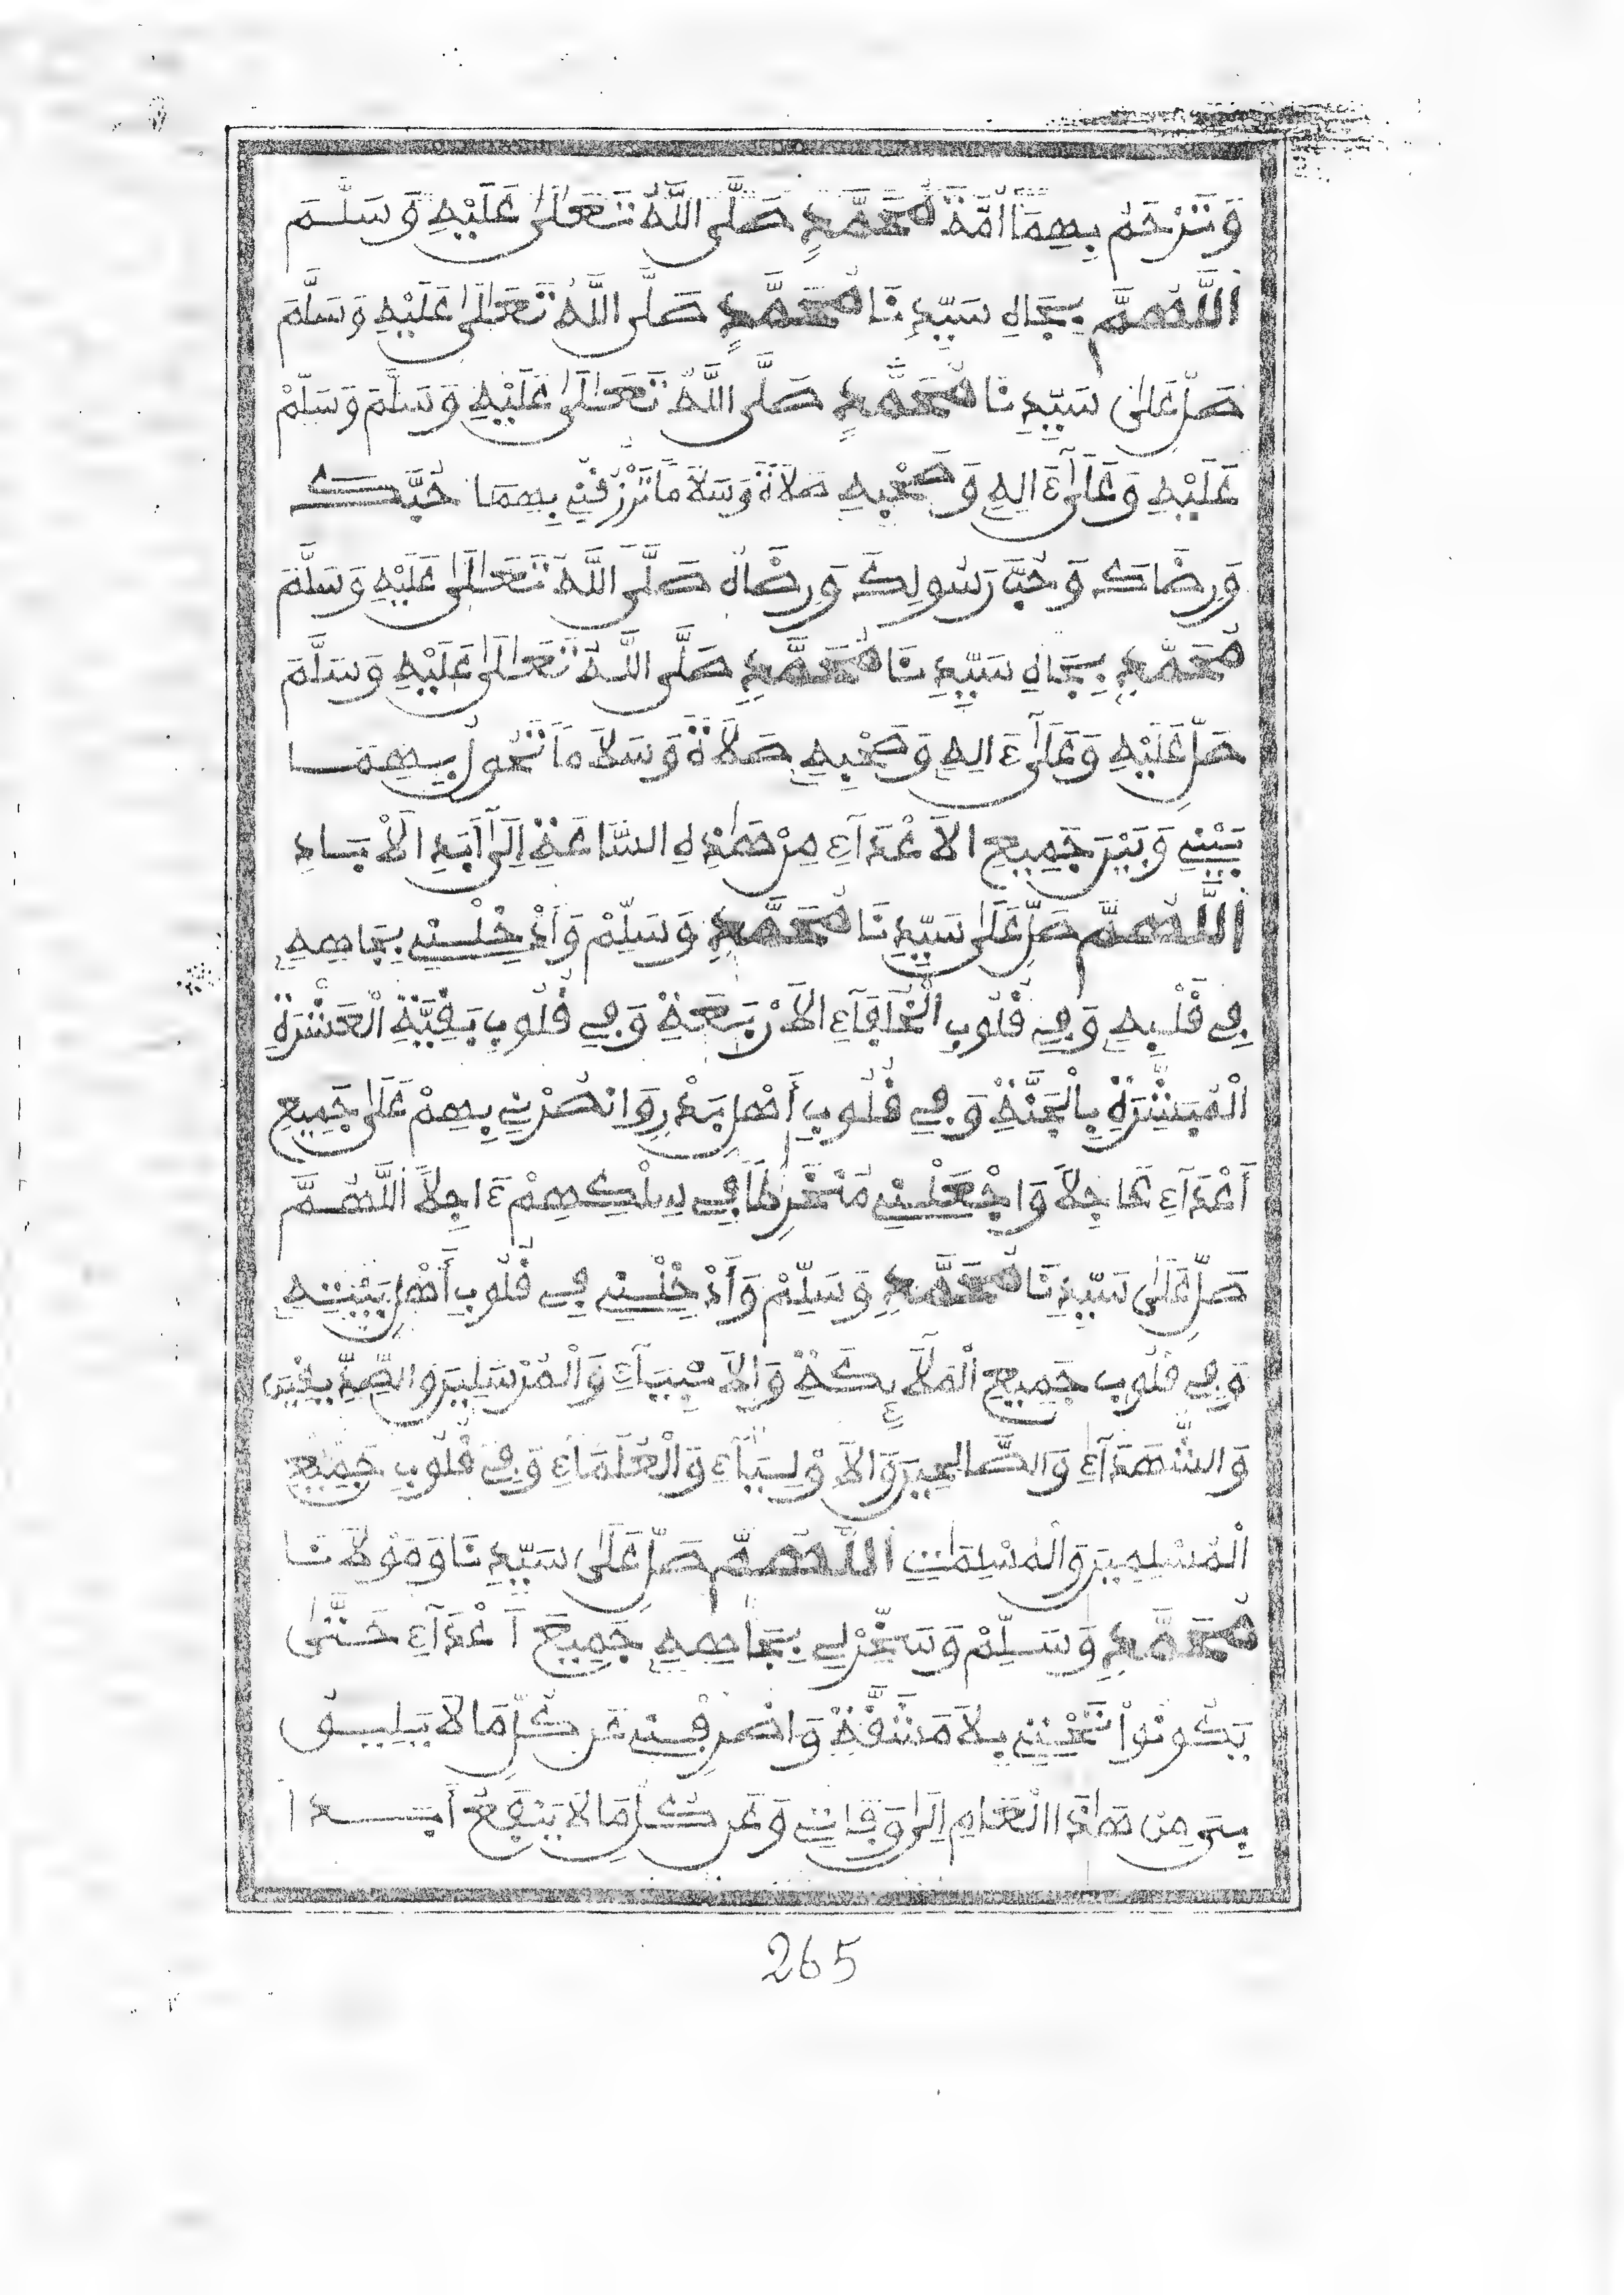 وَتَرْحَمُ بِهِمَا أُمَّةَ مُحَمَّدٍ صَلَّى اللَّهُ تَعَالَىٰ عَلَيْهِ وَسَلَّمَ
اللَّهُمَّ بِجَاهِ سَيِّدِنَا مُحَمَّدٍ صَلَّى اللَّهُ تَعَالَىٰ عَلَيْهِ وَسَلَّمَ
صَلِّ عَلَىٰ سَيِّدِنَا مُحَمَّدٍ صَلَّى اللَّهُ تَعَالَىٰ عَلَيْهِ وَسَلَّمَ وَسَلِّمْ
عَلَيْهِ وَعَلَىٰ ءَالِهِ وَصَحْبِهِ صَلَاةً وَسَلَامًا تَرْزُقُنِي بِهِمَا حُبَّكَ
وَرِضَاكَ وَحُبَّ رَسُولِكَ وَرِضَاهُ صَلَّى اللَّهُ تَعَالَىٰ عَلَيْهِ وَسَلَّمَ
مُحَمَّدٍ بِجَاهِ سَيِّدِنَا مُحَمَّدٍ صَلَّى اللَّهُ تَعَالَىٰ عَلَيْهِ وَسَلَّمَ
صَلِّ عَلَيْهِ وَعَلَىٰ ءَالِهِ وَصَحْبِهِ صَلَاةً وَسَلَامًا تَحُولُ بِهِمَا
بَيْنِي وَبَيْنَ جَمِيعِ الْأَعْدَآءِ مِنْ هَٰذِهِ السَّاعَةِ إِلَىٰ أَبَدِ الْأَبَادِ
اللَّهُمَّ صَلِّ عَلَىٰ سَيِّدِنَا مُحَمَّدٍ وَسَلِّمْ وَأَدْخِلْنِي بِجَاهِهِ
فِي قَلْبِهِ وَفِي قُلُوبِ الْخُلَفَآءِ الْأَرْبَعَةِ وَفِي قُلُوبِ بَقِيَّةِ الْعَشَرَةِ
الْمُبَشَّرَةِ بِالْجَنَّةِ وَفِي قُلُوبِ أَهْلِ بَدْرٍ وَانْصُرْنِي بِهِمْ عَلَىٰ جَمِيعِ
أَعْدَآءِ عَاجِلًا وَاجْعَلْنِي مُنْخَرِطًا فِي سِلْكِهِمْ ءَاجِلًا اللَّهُمَّ
صَلِّ عَلَىٰ سَيِّدِنَا مُحَمَّدٍ وَسَلِّمْ وَأَدْخِلْنِي فِي قُلُوبِ أَهْلِ بَيْتِهِ
وَفِي قُلُوبِ جَمِيعِ الْمَلَآئِكَةِ وَالْأَنْبِيَآءِ وَالْمُرْسَلِينَ وَالصِّدِّيقِينَ
وَالشُّهَدَآءِ وَالصَّالِحِينَ وَالْأَوْلِيَآءِ وَالْعُلَمَاءِ وَفِي قُلُوبِ جَمِيعِ
الْمُسْلِمِينَ وَالْمُسْلِمَاتِ اللَّهُمَّ صَلِّ عَلَىٰ سَيِّدِنَا وَمَوْلَانَا
مُحَمَّدٍ وَسَلِّمْ وَسَخِّرْ لِي بِجَاهِهِ جَمِيعَ أَعْدَآءِ حَتَّىٰ
يَكُونُوا تَحْتِي بِلَا مَشَقَّةٍ وَاصْرِفْنِي عَنْ كُلِّ مَا لَا يَلِيقُ
بِي مِنْ هَٰذَا الْعَامِ إِلَىٰ وَفَاتِي وَعَنْ كُلِّ مَا لَا يَنْفَعُ أَبَدًا
265